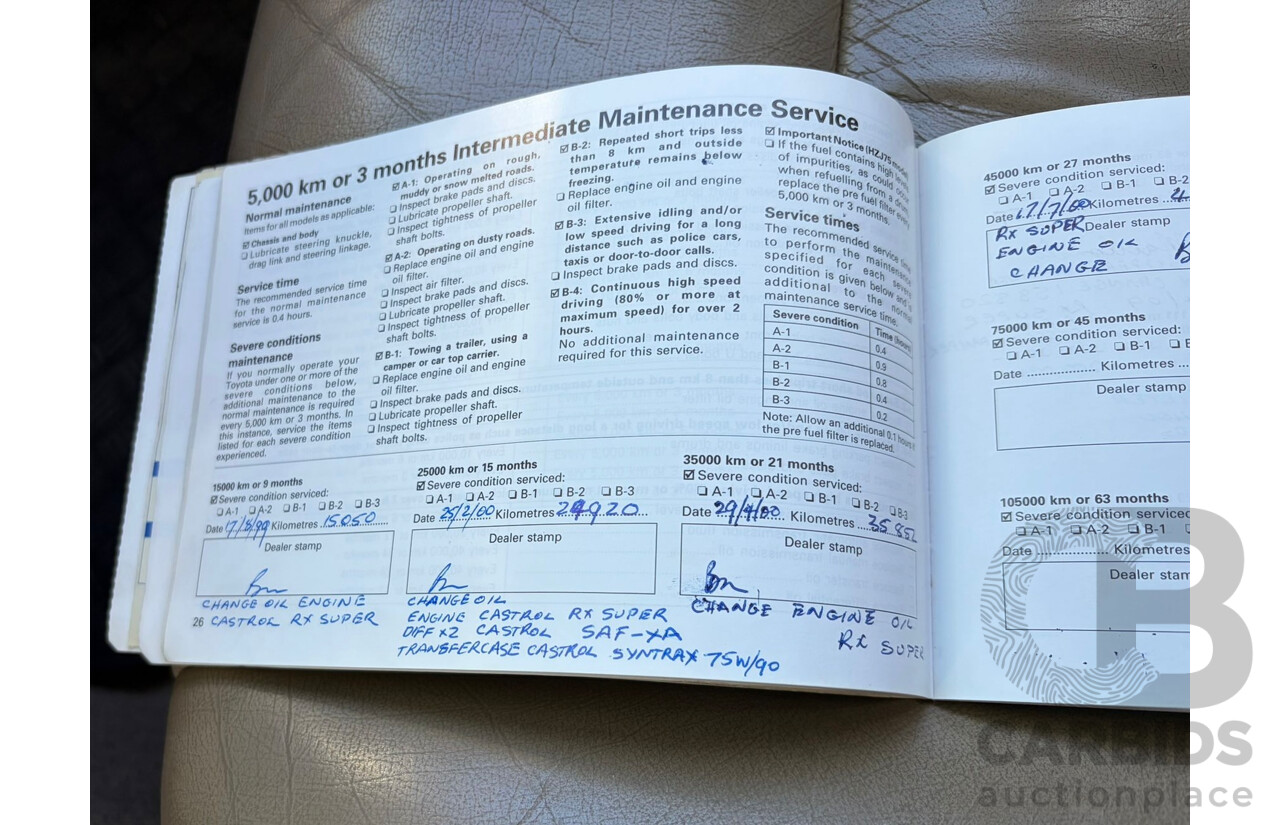 5,000 km or 3 months Intermediate Maintenance Service
Normal maintenance
Items for all models as applicable:
☑ Chassis and body
❏ Lubricate steering knuckle,
drag link and steering linkage.
Service time
The recommended service time
for the normal maintenance
service is 0.4 hours.
Severe conditions
maintenance
If you normally operate your
Toyota under one or more of the
severe conditions below,
additional maintenance to the
normal maintenance is required
every 5,000 km or 3 months. In
this instance, service the items
listed for each severe condition
experienced.
☑ A-1: Operating on rough,
muddy or snow melted roads.
❏ Inspect brake pads and discs.
❏ Lubricate propeller shaft.
❏ Inspect tightness of propeller
shaft bolts.
☑ A-2: Operating on dusty roads.
❏ Replace engine oil and engine
oil filter.
❏ Inspect air filter.
❏ Inspect brake pads and discs.
❏ Lubricate propeller shaft.
❏ Inspect tightness of propeller
shaft bolts.
☑ B-1: Towing a trailer, using a
camper or car top carrier.
❏ Replace engine oil and engine
oil filter.
❏ Inspect brake pads and discs.
❏ Lubricate propeller shaft.
❏ Inspect tightness of propeller
shaft bolts.
☑ B-2: Repeated short trips less
than 8 km and outside
temperature remains below
freezing.
❏ Replace engine oil and engine
oil filter.
☑ B-3: Extensive idling and/or
low speed driving for a long
distance such as police cars,
taxis or door-to-door calls.
❏ Inspect brake pads and discs.
☑ B-4: Continuous high speed
driving (80% or more at
maximum speed) for over 2
hours.
No additional maintenance
required for this service.
☑ Important Notice (HZJ75
❏ If the fuel contains high
of impurities, as could
when refuelling from a
replace the pre fuel filter every
5,000 km or 3 months.
Service times
The recommended service time
to perform the maintenance
specified for each severe
condition given below
additional to the normal
maintenance service time.
Severe condition Time (hours)
A-1 0.4
A-2 0.9
B-1 0.8
B-2 0.4
B-3 0.2
Note: Allow an additional 0.1 hours
the pre fuel filter is replaced.
15000 km or 9 months
☑ Severe condition serviced:
❏ A-1 ❏ A-2 ❏ B-1 ❏ B-2 ❏ B-3
Date 17/8/99 Kilometres 15050
Dealer stamp
CHANGE OIL ENGINE
CASTROL RX SUPER
26
25000 km or 15 months
☑ Severe condition serviced:
❏ A-1 ❏ A-2 ❏ B-1 ❏ B-2 ❏ B-3
Date 25/2/00 Kilometres 24920
Dealer stamp
CHANGE OIL
ENGINE CASTROL RX SUPER
DIFF x2 CASTROL SAF-XA
TRANSFERCASE CASTROL SYNTRAX 75W/90
35000 km or 21 months
☑ Severe condition serviced:
❏ A-1 ❏ A-2 ❏ B-1 ❏ B-2 ❏ B-3
Date 29/4/00 Kilometres 3585
Dealer stamp
CHANGE ENGINE OIL
RX SUPER
45000 km or 27 months
☑ Severe condition serviced:
❏ A-1 ❏ A-2 ❏ B-1 ❏ B-2
Date 17/7/00 Kilometres
Dealer stamp
RX SUPER
ENGINE OIL
CHANGE
75000 km or 45 months
☑ Severe condition serviced:
❏ A-1 ❏ A-2 ❏ B-1
Date Kilometres
Dealer stamp
105000 km or 63 months
☑ Severe condition serviced
❏ A-1 ❏ A-2 ❏ B-1
Date Kilometres
Dealer
CB
CARBIDS
auctionplace